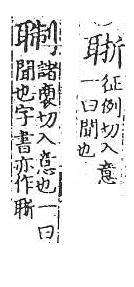 征例切入意
一曰聞也
諸裔切入意也一曰
聞也字書亦作